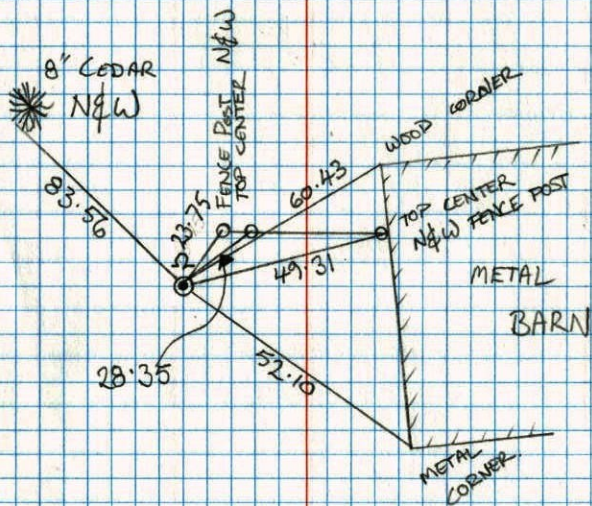 8" CEDAR
N&W
83.56
23.75
FENCE POST N&W
TOP CENTER
60.43
WOOD CORNER
TOP CENTER
N&W FENCE POST
49.31
METAL
BARN
28.35
52.10
METAL
CORNER.